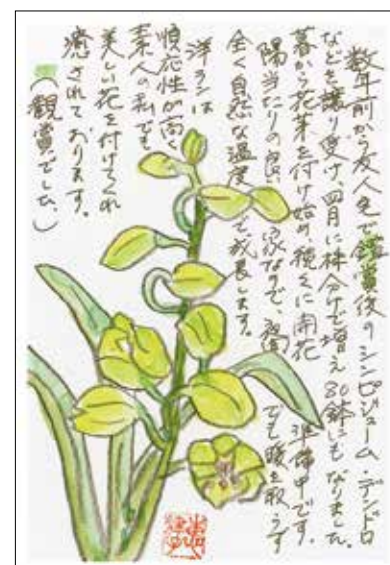 数年前から友人宅で鑑賞後のシンビジューム・デンドロ
などを譲り受け、四月に株分けで増え80鉢にもなりました。
暮から花芽を付け始め、続々に開花準備中です。
陽当たりの良い家なので、夜間でも暖を取らず
全く自然な温度で成長します。
洋ランは
順応性が高く
素人の私でも
美しい花を付けてくれ
癒されております。
(観賞でした。)